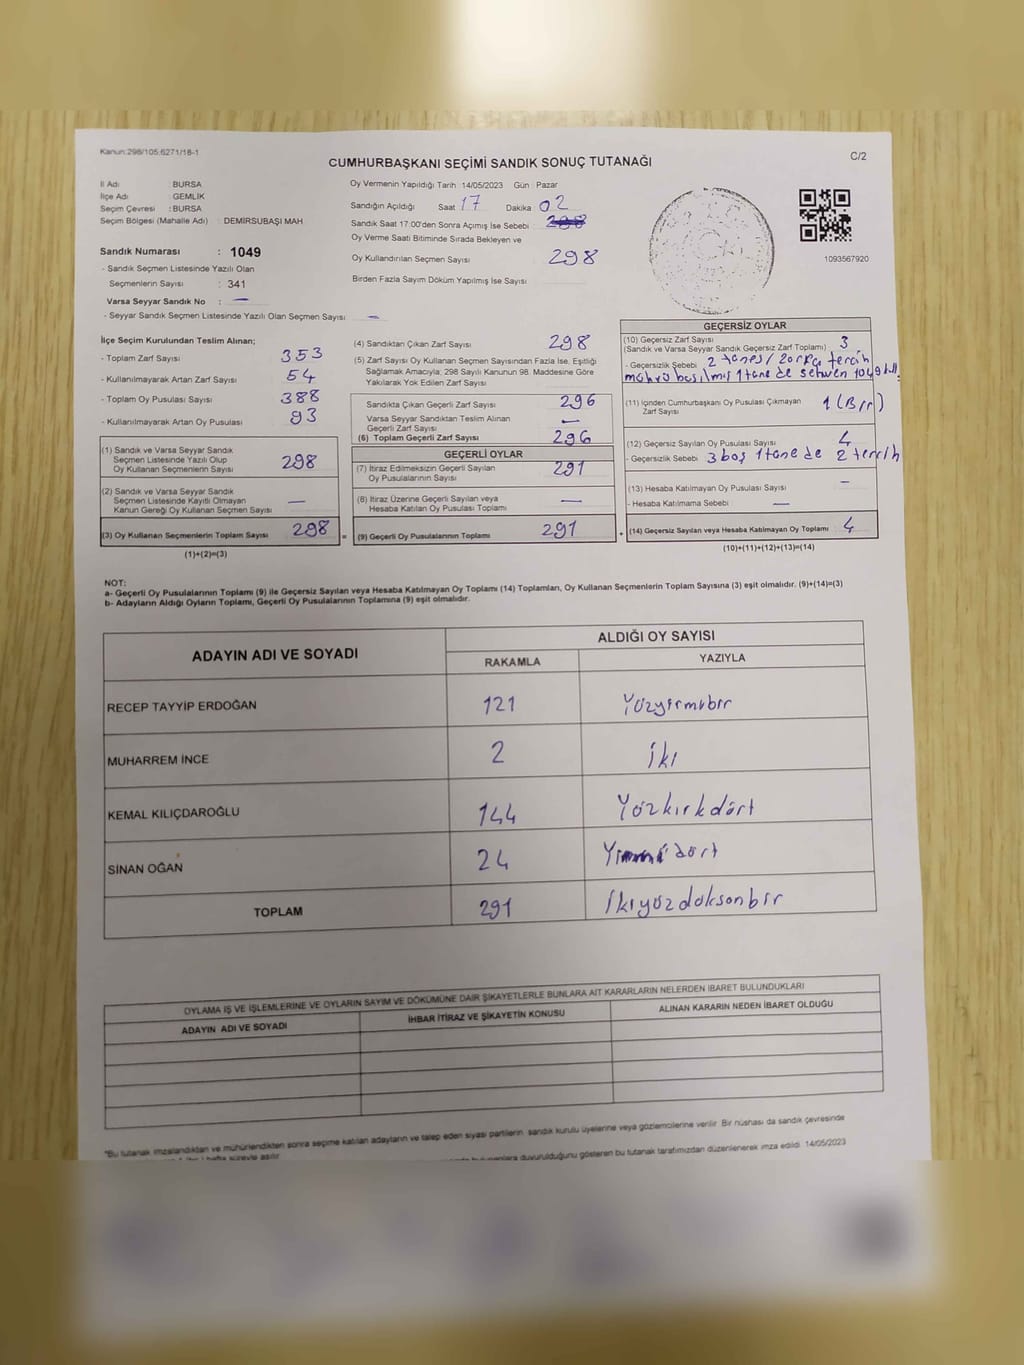 Kanun:298/105:6271/18-1
CUMHURBAŞKANI SEÇİMİ SANDIK SONUÇ TUTANAĞI
C/2
İl Adı BURSA
İlçe Adı GEMLİK
Seçim Çevresi : BURSA
Seçim Bölgesi (Mahalle Adı) : DEMİRSUBAŞI MAH
Sandık Numarası : 1049
- Sandık Seçmen Listesinde Yazılı Olan
Seçmenlerin Sayısı : 341
Varsa Seyyar Sandık No : —
- Seyyar Sandık Seçmen Listesinde Yazılı Olan Seçmen Sayısı : —
Oy Vermenin Yapıldığı Tarih 14/05/2023 Gün : Pazar
Sandığın Açıldığı Saat 17 Dakika 02
Sandık Saat 17:00'den Sonra Açımış İse Sebebi
Oy Verme Saati Bitiminde Sırada Bekleyen ve
Oy Kullandırılan Seçmen Sayısı 298
Birden Fazla Sayım Döküm Yapılmış İse Sayısı
1093567920
İlçe Seçim Kurulundan Teslim Alınan;
- Toplam Zarf Sayısı 353
- Kullanılmayarak Artan Zarf Sayısı 54
- Toplam Oy Pusulası Sayısı 388
- Kullanılmayarak Artan Oy Pusulası 93
(1) Sandık ve Varsa Seyyar Sandık
Seçmen Listesinde Yazılı Olup
Oy Kullanan Seçmenlerin Sayısı 298
(2) Sandık ve Varsa Seyyar Sandık
Seçmen Listesinde Kayıtlı Olmayan
Kanun Gereği Oy Kullanan Seçmen Sayısı —
(3) Oy Kullanan Seçmenlerin Toplam Sayısı 298 =
(1)+(2)=(3)
(4) Sandıktan Çıkan Zarf Sayısı 298
(5) Zarf Sayısı Oy Kullanan Seçmen Sayısından Fazla İse, Eşitliği
Sağlamak Amacıyla; 298 Sayılı Kanunun 98. Maddesine Göre
Yakılarak Yok Edilen Zarf Sayısı
Sandıkta Çıkan Geçerli Zarf Sayısı 296
Varsa Seyyar Sandıktan Teslim Alınan
Geçerli Zarf Sayısı —
(6) Toplam Geçerli Zarf Sayısı 296
GEÇERLİ OYLAR
(7) İtiraz Edilmeksizin Geçerli Sayılan
Oy Pusulalarının Sayısı 291
(8) İtiraz Üzerine Geçerli Sayılan veya
Hesaba Katılan Oy Pusulası Toplamı —
(9) Geçerli Oy Pusulalarının Toplamı 291 +
GEÇERSİZ OYLAR
(10) Geçersiz Zarf Sayısı 3
(Sandık ve Varsa Seyyar Sandık Geçersiz Zarf Toplamı)
- Geçersizlik Sebebi 2 tanesi zarfa tercih
mührü basılmış 1 tane de sehven 1049
(11) İçinden Cumhurbaşkanı Oy Pusulası Çıkmayan 1 (Bir)
Zarf Sayısı
(12) Geçersiz Sayılan Oy Pusulası Sayısı 4
- Geçersizlik Sebebi 3 boş 1 tane de 2 tercih
(13) Hesaba Katılmayan Oy Pusulası Sayısı -
- Hesaba Katılmama Sebebi —
(14) Geçersiz Sayılan veya Hesaba Katılmayan Oy Toplamı 4
(10)+(11)+(12)+(13)=(14)
NOT:
a- Geçerli Oy Pusulalarının Toplamı (9) ile Geçersiz Sayılan veya Hesaba Katılmayan Oy Toplamı (14) Toplamları, Oy Kullanan Seçmenlerin Toplam Sayısına (3) eşit olmalıdır. (9)+(14)=(3)
b- Adayların Aldığı Oyların Toplamı, Geçerli Oy Pusulalarının Toplamına (9) eşit olmalıdır.
ADAYIN ADI VE SOYADI ALDIĞI OY SAYISI
RAKAMLA YAZIYLA
RECEP TAYYİP ERDOĞAN 121 Yüzyirmibir
MUHARREM İNCE 2 İki
KEMAL KILIÇDAROĞLU 144 Yüzkırkdört
SİNAN OĞAN 24 Yirmidört
TOPLAM 291 İkiyüzdoksanbir
OYLAMA İŞ VE İŞLEMLERİNE VE OYLARIN SAYIM VE DÖKÜMÜNE DAİR ŞİKAYETLERLE BUNLARA AİT KARARLARIN NELERDEN İBARET BULUNDUKLARI
ADAYIN ADI VE SOYADI İHBAR İTİRAZ VE ŞİKAYETİN KONUSU ALINAN KARARIN NEDEN İBARET OLDUĞU
*Bu tutanak imzalandıktan ve mühürlendikten sonra seçime katılan adayların ve talep eden siyasi partilerin sandık kurulu üyelerine veya gözlemcilerine verilir. Bir nüshası da sandık çevresinde
hafta süreyle asılır. duyurulduğunu gösteren bu tutanak tarafımızdan düzenlenerek imza edildi. 14/05/2023